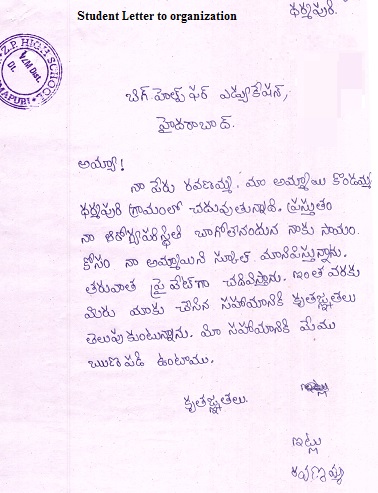 Student Letter to organization
ధర్మపురి.
Z.P. HIGH SCHOOL
VZM Dist.
బిగ్ హెల్ప్ ఫర్ ఎడ్యుకేషన్,
హైదరాబాద్.
అయ్యా!
నా పేరు రవణమ్మ. మా అమ్మాయి కొండమ్మ
ధర్మపురి గ్రామంలో చదువుతున్నాది. ప్రస్తుతం
నా ఆరోగ్యపరిస్థితి బాగోలేనందున నాకు సాయం
కోసం నా అమ్మాయిని స్కూల్ మానిపిస్తున్నాను.
తరువాత ప్రైవేట్‌గా చదివిస్తాను. ఇంత వరకు
మీరు మాకు చేసిన సహాయానికి కృతజ్ఞతలు
తెలుపుకుంటున్నాను. మీ సహాయానికి మేము
ఋణపడి ఉంటాము.
కృతజ్ఞతలు.
ఇట్లు
రవణమ్మ